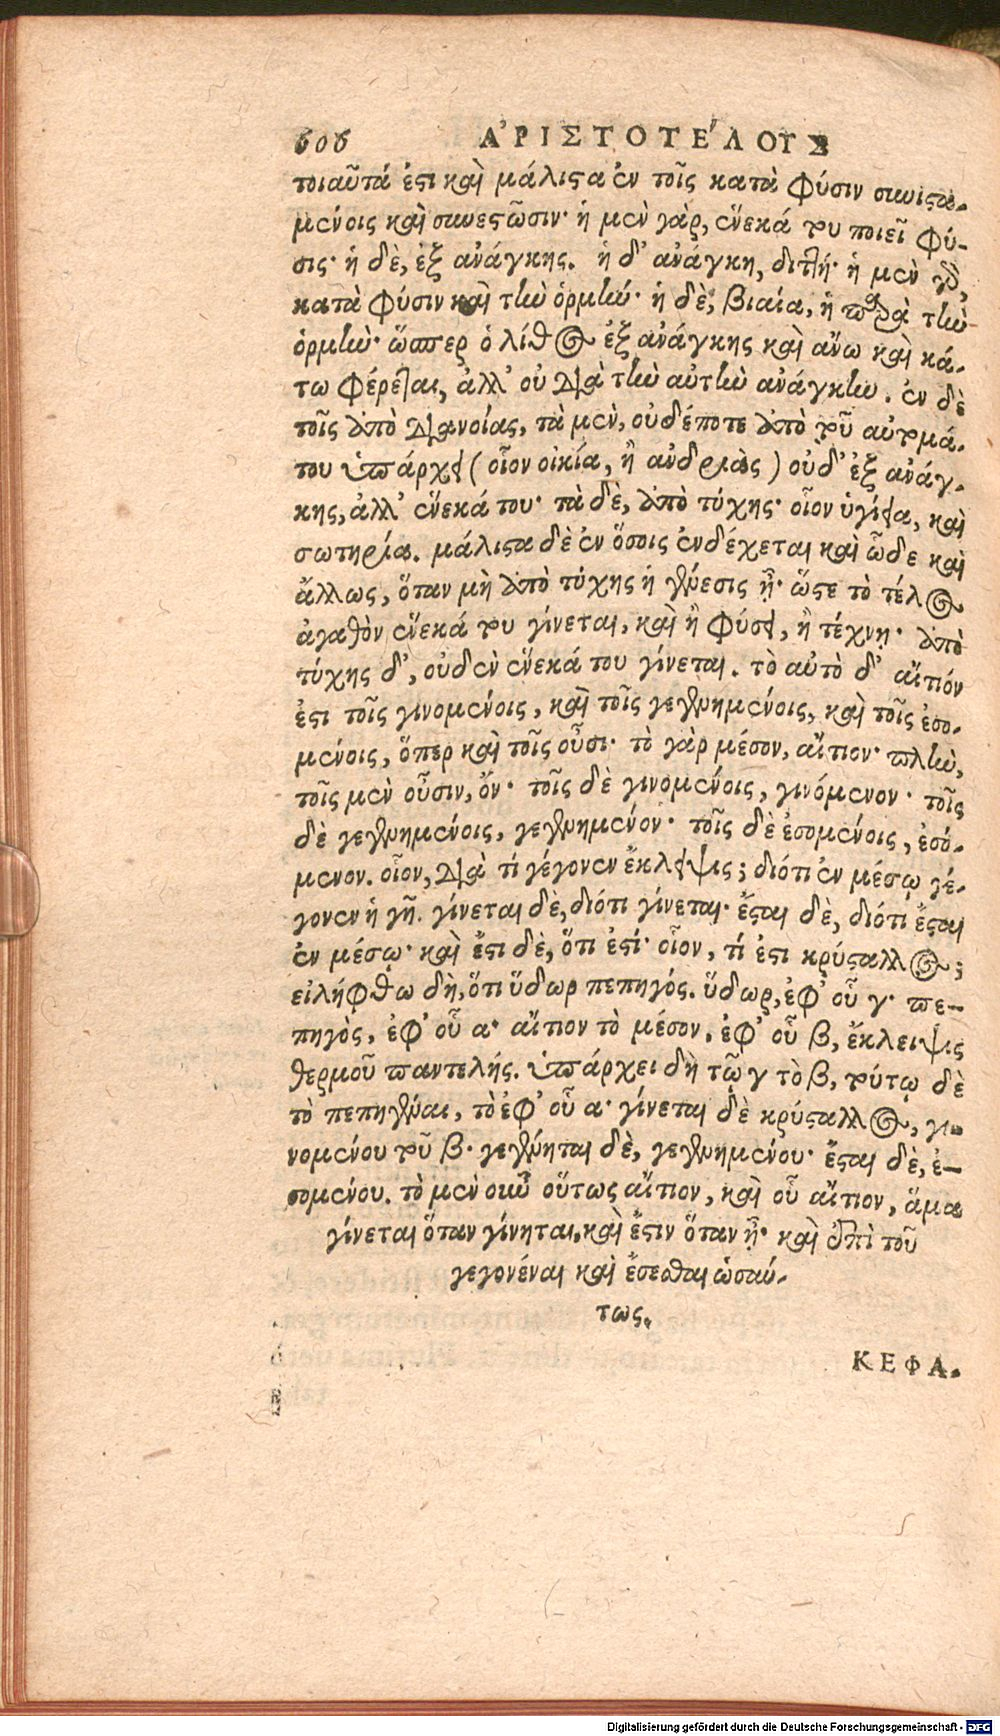 606 ἈΡΙΣΤΟΤΈΛΟΥΣ
τοιαῦτά ἐστι καὶ μάλιστα ἐν τοῖς κατὰ φύσιν συνιστα-
μένοις καὶ συνεστῶσιν· ἡ μὲν γὰρ, ἕνεκά του ποιεῖ φύ-
σις· ἡ δὲ, ἐξ ἀνάγκης. ἡ δ' ἀνάγκη, διττή· ἡ μὲν γὰρ,
κατὰ φύσιν καὶ τὴν ὁρμήν· ἡ δὲ, βιαία, ἡ παρὰ τὴν
ὁρμήν· ὥσπερ ὁ λίθος ἐξ ἀνάγκης καὶ ἄνω καὶ κά-
τω φέρεται, ἀλλ' οὐ διὰ τὴν αὐτὴν ἀνάγκην. ἐν δὲ
τοῖς ἀπὸ διανοίας, τὰ μὲν, οὐδέποτε ἀπὸ τοῦ αὐτομά-
του ὑπάρχει (οἷον οἰκία, ἢ ἀνδριὰς) οὐδ' ἐξ ἀνάγ-
κης, ἀλλ' ἕνεκά του· τὰ δὲ, ἀπὸ τύχης· οἷον ὑγίεια, καὶ
σωτηρία. μάλιστα δὲ ἐν ὅσοις ἐνδέχεται καὶ ὧδε καὶ
ἄλλως, ὅταν μὴ ἀπὸ τύχης ἡ γένεσις ᾖ· ὥστε τὸ τέλος
ἀγαθὸν ἕνεκά του γίνεται, καὶ ἢ φύσει, ἢ τέχνῃ· ἀπὸ
τύχης δ', οὐδὲν ἕνεκά του γίνεται. τὸ αὐτὸ δ' αἴτιόν
ἐστι τοῖς γινομένοις, καὶ τοῖς γεγενημένοις, καὶ τοῖς ἐσο-
μένοις, ὅπερ καὶ τοῖς οὖσι· τὸ γὰρ μέσον, αἴτιον· πλὴν,
τοῖς μὲν οὖσιν, ὄν· τοῖς δὲ γινομένοις, γινόμενον· τοῖς
δὲ γεγενημένοις, γεγενημένον· τοῖς δὲ ἐσομένοις, ἐσό-
μενον. οἷον, διὰ τί γέγονεν ἔκλειψις; διότι ἐν μέσῳ γέ-
γονεν ἡ γῆ. γίνεται δὲ, διότι γίνεται· ἔσται δὲ, διότι ἔσται
ἐν μέσῳ· καὶ ἔστι δὲ, ὅτι ἐστί· οἷον, τί ἐστι κρύσταλλος;
εἰλήφθω δὴ, ὅτι ὕδωρ πεπηγός. ὕδωρ, ἐφ' οὗ γ· πε-
πηγὸς, ἐφ' οὗ α· αἴτιον τὸ μέσον, ἐφ' οὗ β, ἔκλειψις
θερμοῦ παντελής. ὑπάρχει δὴ τῷ γ τὸ β, τούτῳ δὲ
τὸ πεπηγέναι, τὸ ἐφ' οὗ α· γίνεται δὲ κρύσταλλος, γι-
νομένου τοῦ β· γεγένηται δὲ, γεγενημένου· ἔσται δὲ, ἐ-
σομένου. τὸ μὲν οὖν οὕτως αἴτιον, καὶ οὗ αἴτιον, ἅμα
γίνεται ὅταν γίνηται, καὶ ἔστιν ὅταν ᾖ· καὶ ἐπὶ τοῦ
γεγονέναι καὶ ἔσεσθαι ὡσαύ-
τως.
ΚΕΦΑ-
Digitalisierung gefördert durch die Deutsche Forschungsgemeinschaft - DFG